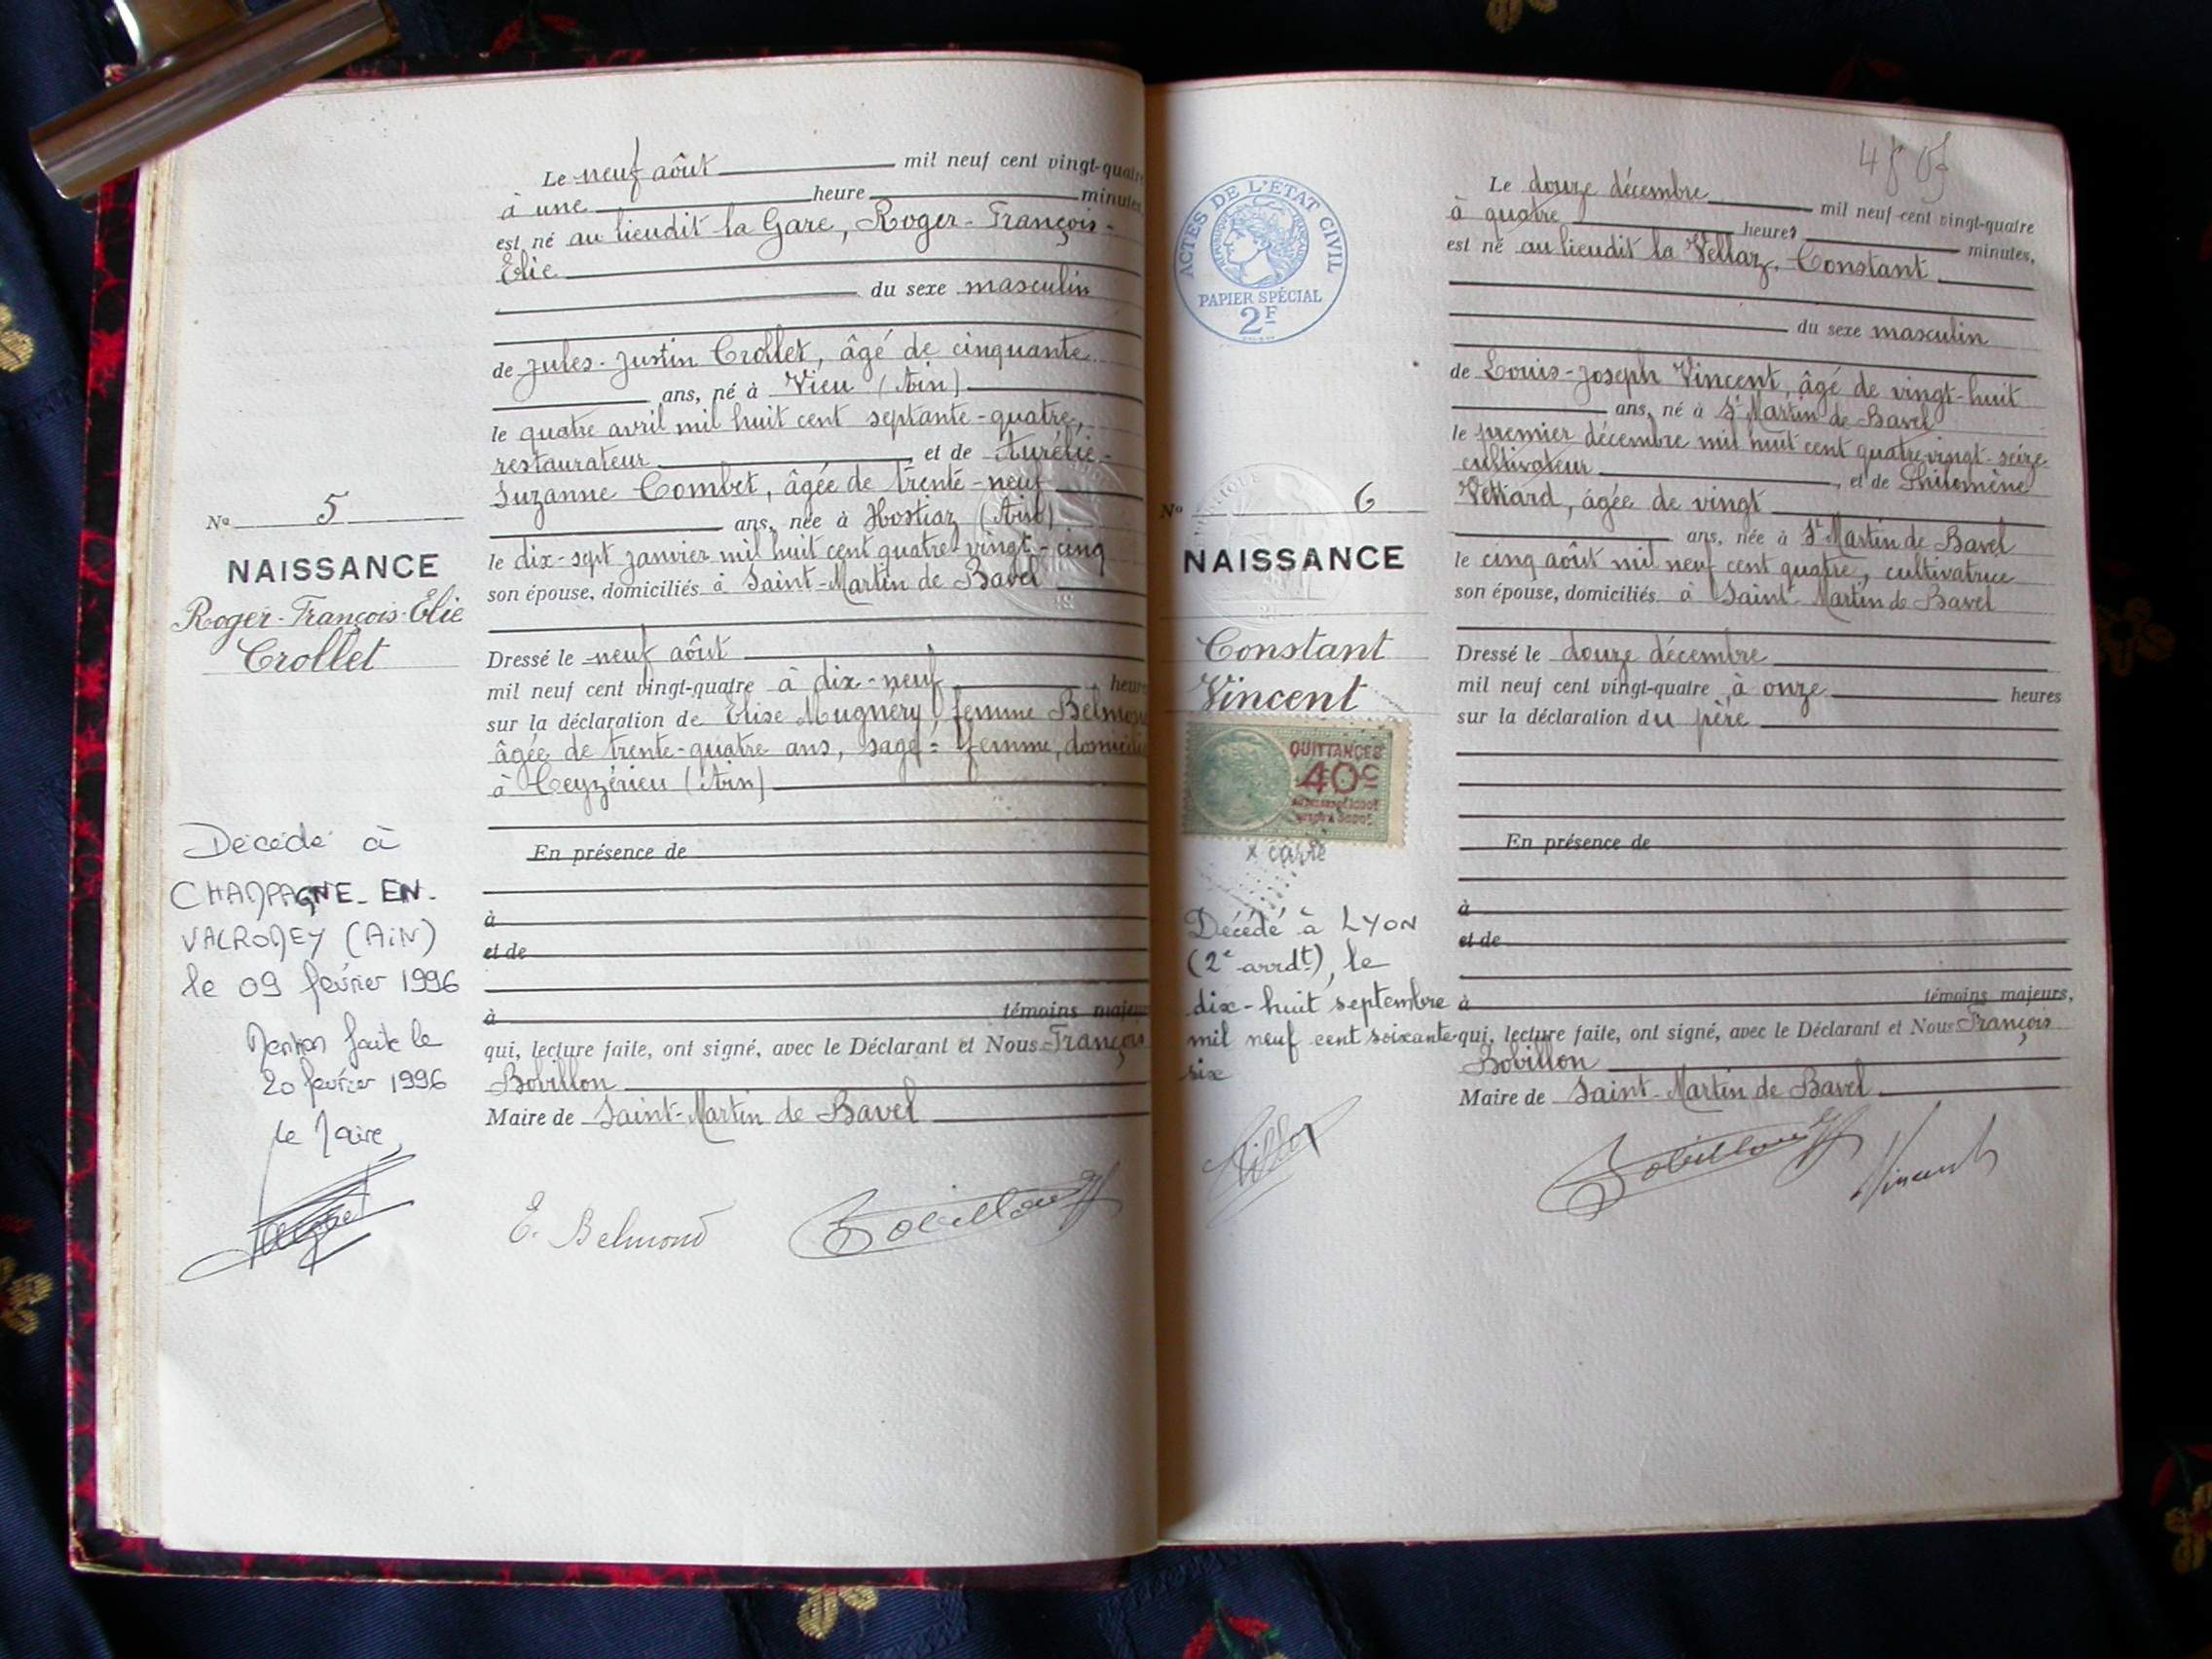 Le neuf août mil neuf cent vingt-quatre
à une heure minutes,
est né au lieudit la Gare, Roger-François-
Elie
du sexe masculin
de Jules-Justin Crollet, âgé de cinquante
ans, né à Vieu (Ain)
le quatre avril mil huit cent septante-quatre,
restaurateur et de Aurélie-
Suzanne Combet, âgée de trente-neuf
ans, née à Hostiaz (Ain)
le dix-sept janvier mil huit cent quatre-vingt-cinq
son épouse, domiciliés à Saint-Martin de Bavel
Dressé le neuf août
mil neuf cent vingt-quatre à dix-neuf heures
sur la déclaration de Elise Mugnery, femme Belmond
âgée de trente-quatre ans, sage=femme, domiciliée
à Ceyzérieu (Ain)
En présence de
à
et de
à témoins majeurs
qui, lecture faite, ont signé, avec le Déclarant et Nous François
Bovillon
Maire de Saint-Martin de Bavel
E. Belmond
Bovillon
No 5
NAISSANCE
Roger-François-Elie
Crollet
Décédé à
CHAMPAGNE-EN-
VALROMEY (AiN)
le 09 février 1996
Mention faite le
20 février 1996
Le Maire,
ACTES DE L'ÉTAT CIVIL
PAPIER SPÉCIAL
2F
No 6
NAISSANCE
Constant
Vincent
QUITTANCES
40c
Décédé à LYON
(2e arrdt), le
dix-huit septembre
mil neuf cent soixante-
six
Le douze décembre mil neuf cent vingt-quatre
à quatre heures minutes,
est né au lieudit la Vellaz, Constant
du sexe masculin
de Louis-Joseph Vincent, âgé de vingt-huit
ans, né à St Martin de Bavel
le premier décembre mil huit cent quatre-vingt-seize
cultivateur, et de Philomène
Vettard, âgée de vingt
ans, née à St Martin de Bavel
le cinq août mil neuf cent quatre, cultivatrice
son épouse, domiciliés à Saint-Martin de Bavel
Dressé le douze décembre
mil neuf cent vingt-quatre à onze heures
sur la déclaration du père
En présence de
à
et de
à témoins majeurs,
qui, lecture faite, ont signé, avec le Déclarant et Nous François
Bovillon
Maire de Saint-Martin de Bavel
Bovillon Vincent